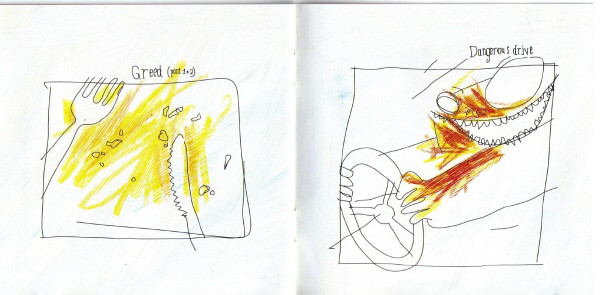 Greed (part 1+2)
Dangerous drive